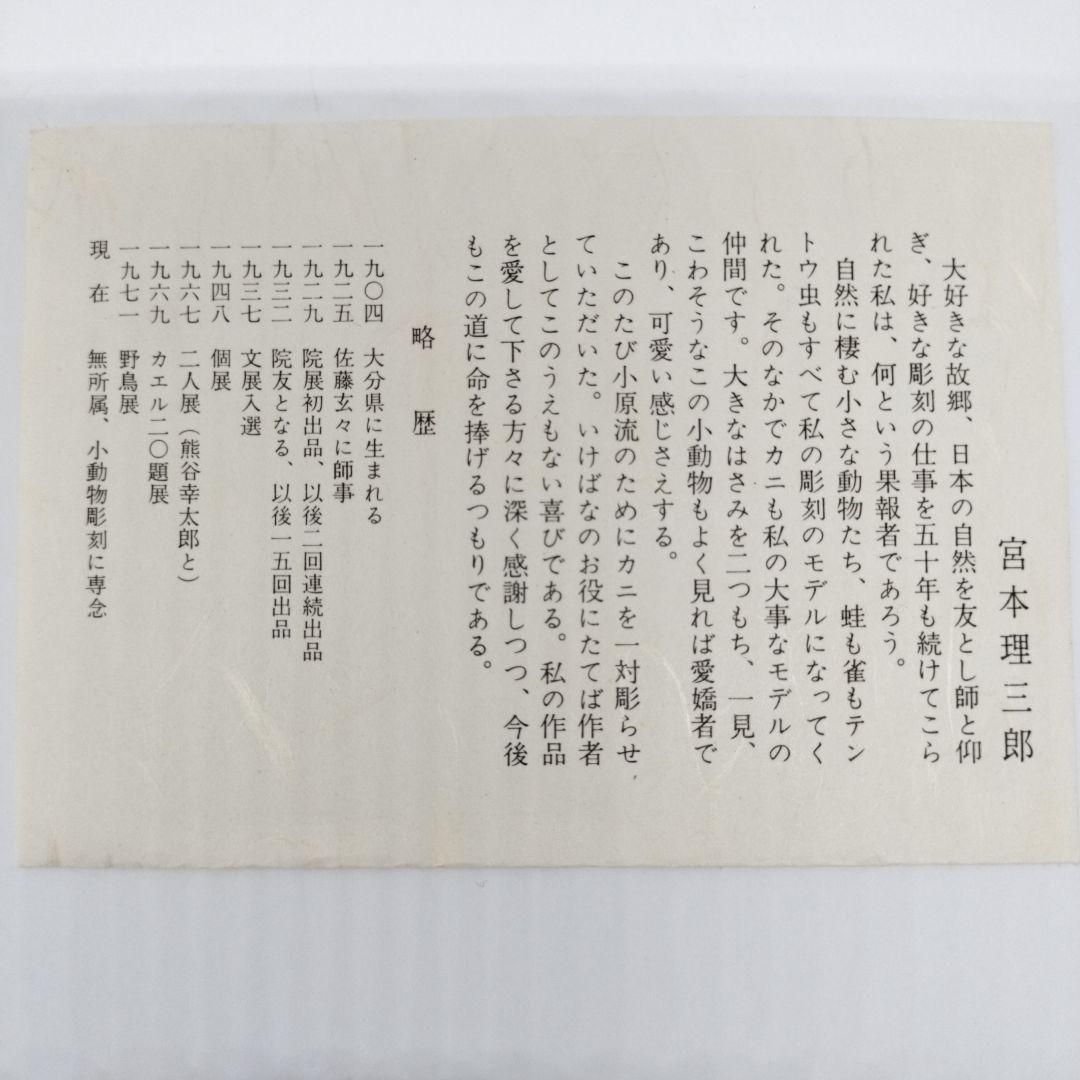 宮本理三郎
大好きな故郷、日本の自然を友とし師と仰
ぎ、好きな彫刻の仕事を五十年も続けてこら
れた私は、何という果報者であろう。
自然に棲む小さな動物たち、蛙も雀もテン
トウ虫もすべて私の彫刻のモデルになってく
れた。そのなかでカニも私の大事なモデルの
仲間です。大きなはさみを二つもち、一見、
こわそうなこの小動物もよく見れば愛嬌者で
あり、可愛い感じさえする。
このたび小原流のためにカニを一対彫らせ
ていただいた。いけばなのお役にたてば作者
としてこのうえもない喜びである。私の作品
を愛して下さる方々に深く感謝しつつ、今後
もこの道に命を捧げるつもりである。
略歴
一九〇四 大分県に生まれる
一九二五 佐藤玄々に師事
一九二九 院展初出品、以後二回連続出品
一九三二 院友となる、以後一五回出品
一九三七 文展入選
一九四八 個展
一九六七 二人展（熊谷幸太郎と）
一九六九 カエル二〇題展
一九七一 野鳥展
現在 無所属、小動物彫刻に専念